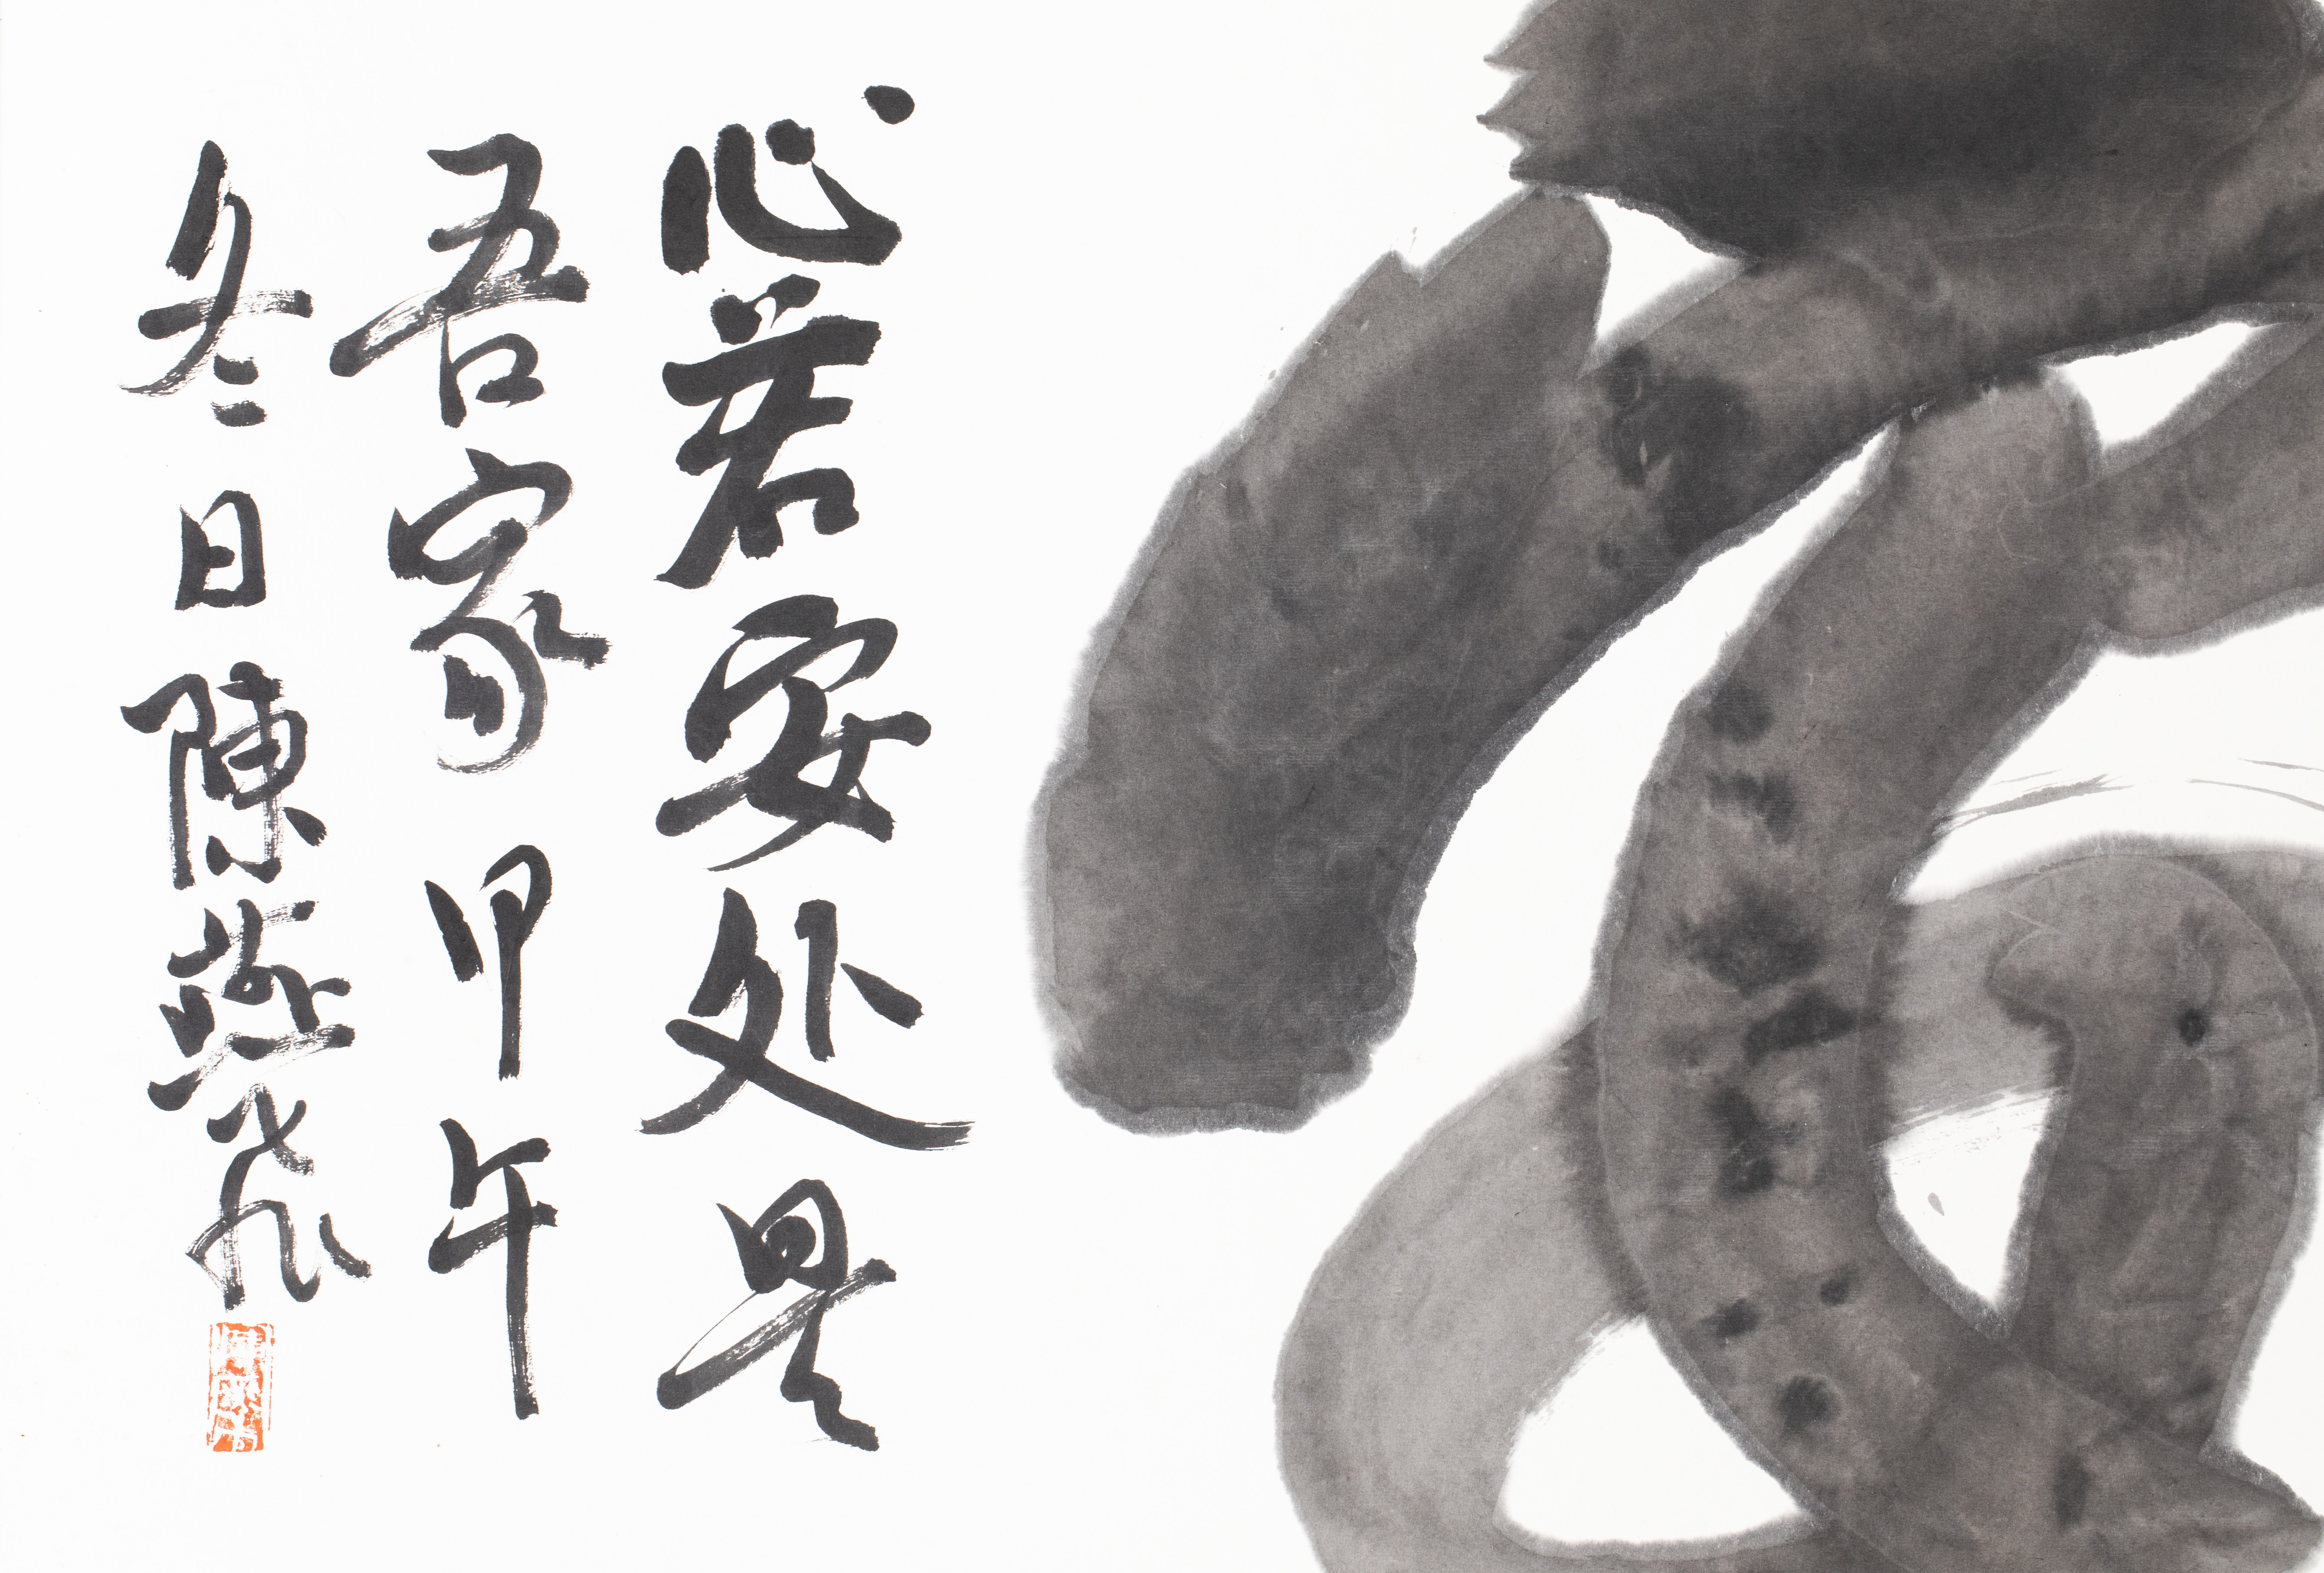 心若安处是
吾家 甲午
冬日陳燕飛